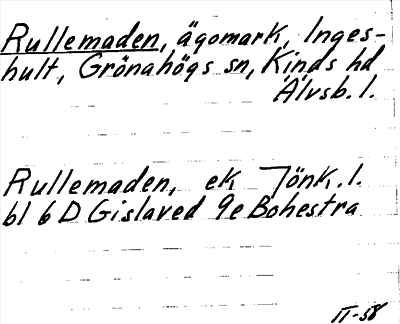 Rullemaden, ägomark, Inges-
hult, Grönahögs sn, Kinds hd
Älvsb. l.
Rullemaden, ek Jönk. l.
bl 6 D Gislaved 9e Bohestra
II-58